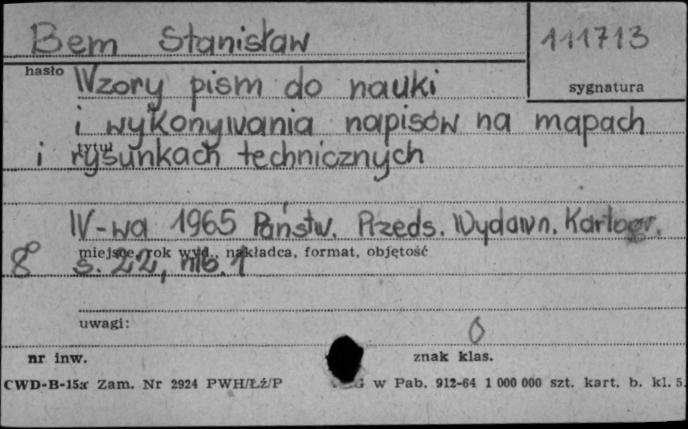 Bem Stanisław
111713
hasło
sygnatura
Wzory pism do nauki
i wykonywania napisów na mapach
tytuł
i rysunkach technicznych
W-wa 1965 Państw. Przeds. Wydawn. Kartogr.
miejsce, rok wyd., nakładca, format, objętość
8° s. 22, nlb. 1
uwagi:
0
nr inw.
znak klas.
CWD-B-15a Zam. Nr 2924 PWH/Łź/P w Pab. 912-64 1 000 000 szt. kart. b. kl. 5.